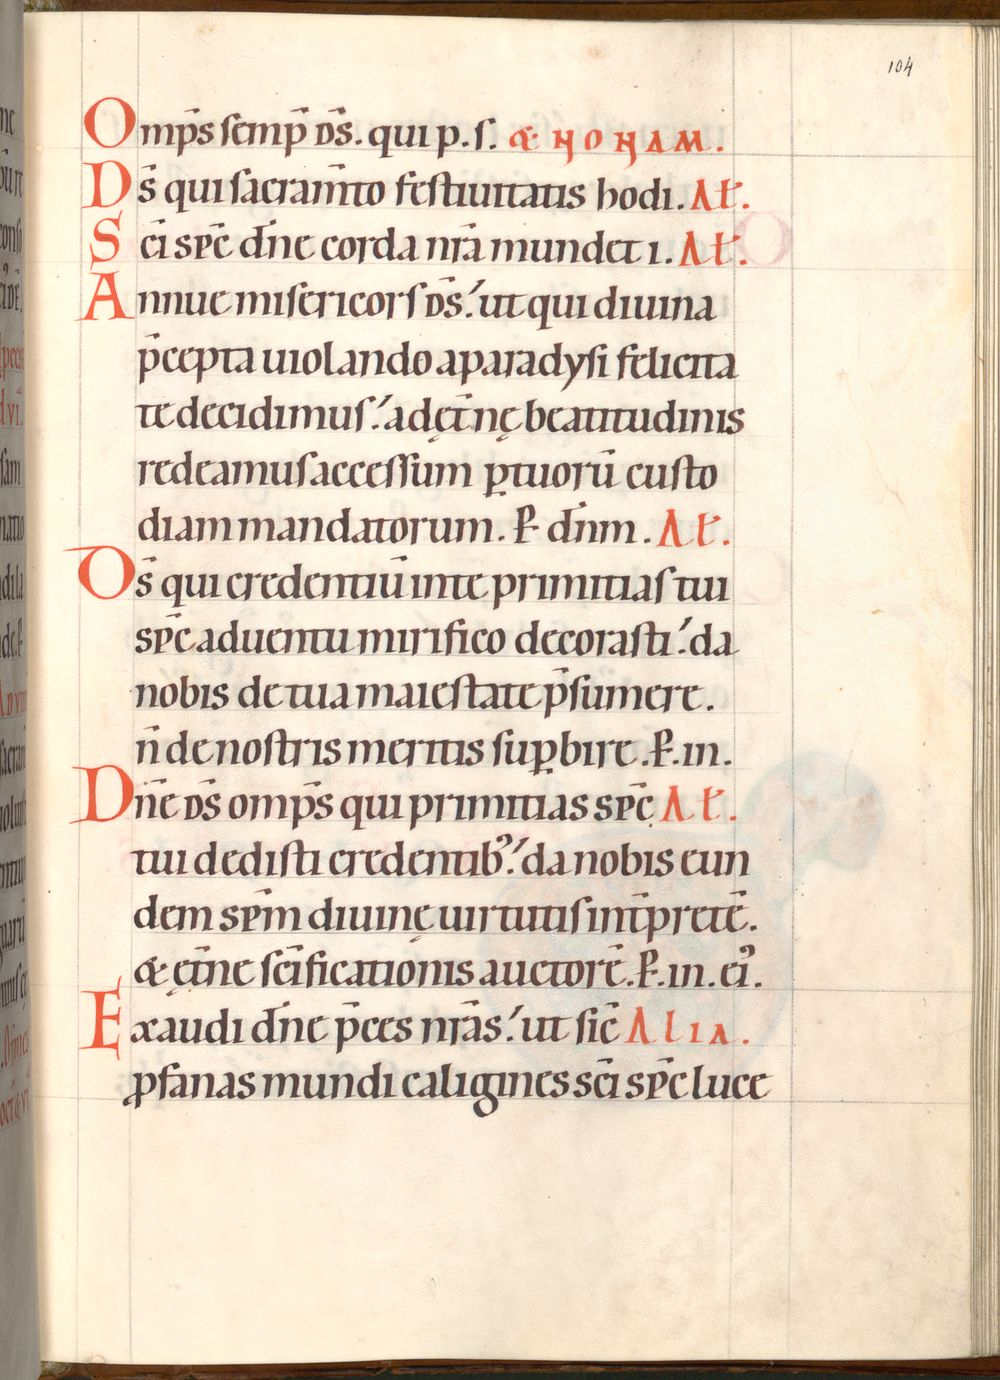 104
Omp̄s semp̄ D̄S. qui p. s. & NONAM.
D̄s qui sacram̄to festiuitatis hodi. Aƚ.
Sc̄i sp̄c d̄ne corda nr̄a mundet i. Aƚ.
Annue misericors D̄S.' ut qui diuina
p̄cepta uiolando a paradysi felicita
te decidimus.' ad ęt̄nę beatitudinis
redeamus accessum ꝑ tuorū custo
diam mandatorum. P. d̄nm. Aƚ.
D̄s qui credentiū in te primitias tui
sp̄c aduentu mirifico decorasti.' da
nobis de tua maiestate p̄sumere.
n̄ de nostris meritis suꝑbire. P. in.
Dn̄e D̄S omp̄s qui primitias sp̄c Aƚ.
tui dedisti credentib᾽.' da nobis eun
dem sp̄m diuinę uirtutis int̄pretē.
& ęt̄ne sc̄ificationis auctorē. P. in. ei᾽.
Exaudi d̄ne p̄ces nr̄as.' ut sic̄ Alia.
ꝓfanas mundi caligines sc̄i sp̄c luce